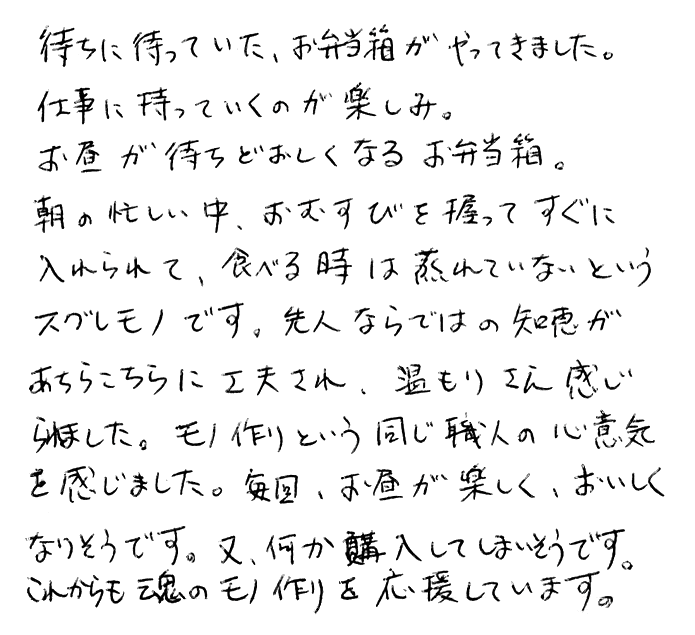 待ちに待っていた、お弁当箱がやってきました。
仕事に持っていくのが楽しみ。
お昼が待ちどおしくなるお弁当箱。
朝の忙しい中、おむすびを握ってすぐに
入れられて、食べる時は蒸れていないという
スグレモノです。先人ならではの知恵が
あちらこちらに工夫され、温もりさえ感じ
られました。モノ作りという同じ職人の心意気
を感じました。毎回、お昼が楽しく、おいしく
なりそうです。又、何か購入してしまいそうです。
これからも魂のモノ作りを応援しています。